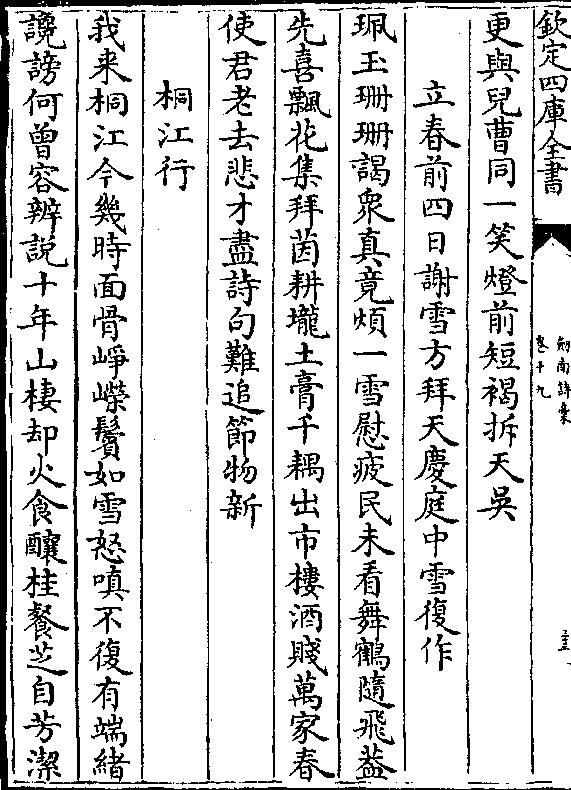 欽定四庫全書
劍南詩稾
卷十九
更與兒曹同一笑燈前短褐拆天吳
立春前四日謝雪方拜天慶庭中雪復作
珮玉珊珊謁衆真竟煩一雪慰疲民未看舞鶴隨飛葢
先喜飄花集拜茵耕壠土膏千耦出市樓酒賤萬家春
使君老去悲才盡詩句難追節物新
桐江行
我来桐江今幾時面骨崢嶸鬢如雪怒嗔不復有端緒
讒謗何曾容辨說十年山棲却火食釀桂餐芝自芳潔